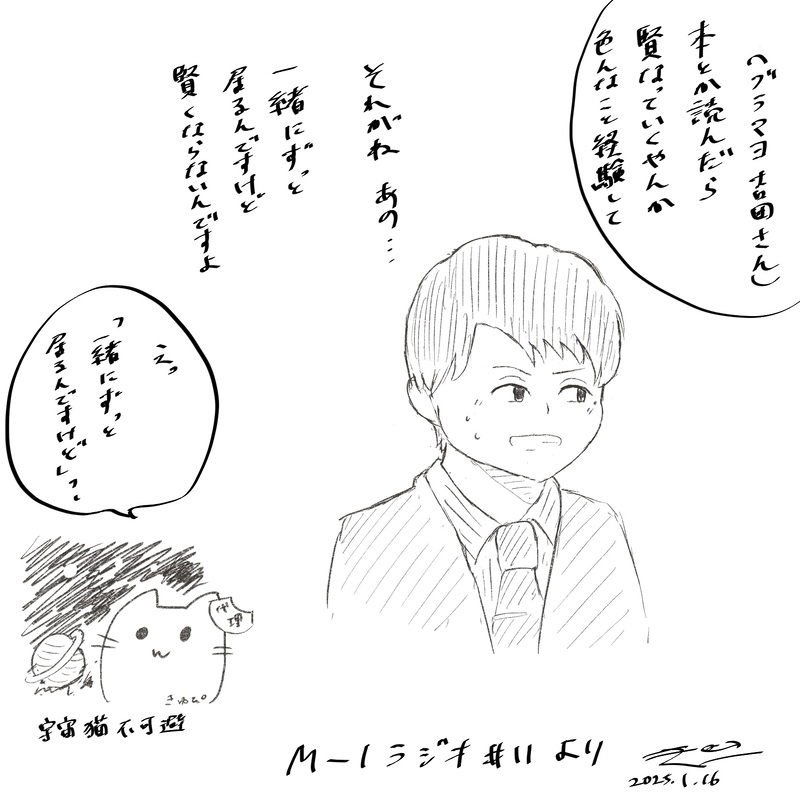 (ブラマヨ吉田さん)
本とか読んだら
賢なっていくやんか
色んなこと経験して
それがね あの…
一緒にずっと
居るんですけど
賢くならないんですよ
えっ
「一緒にずっと
居るんですけど」って
代理
きゅぴ
宇宙猫不可避
M-1ラジオ#11より
2025.1.16